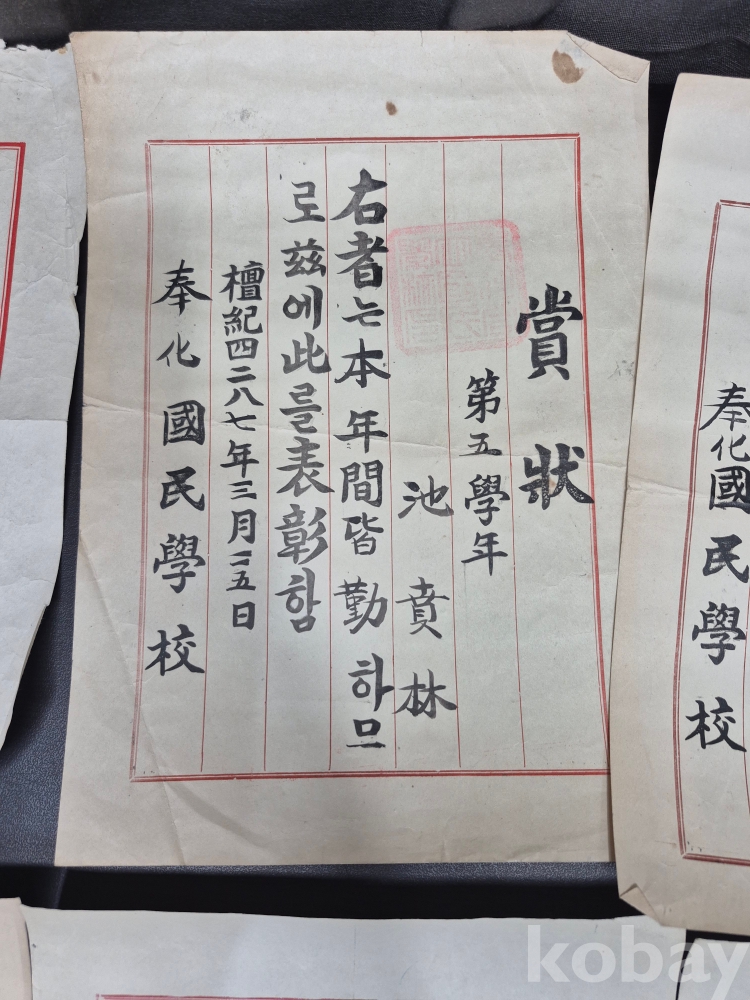 賞狀
第五學年
池賁林
右者는本年間皆勤하므
로玆에此를表彰함
檀紀四二八七年三月二五日
奉化國民學校
奉化國民學校
kobay